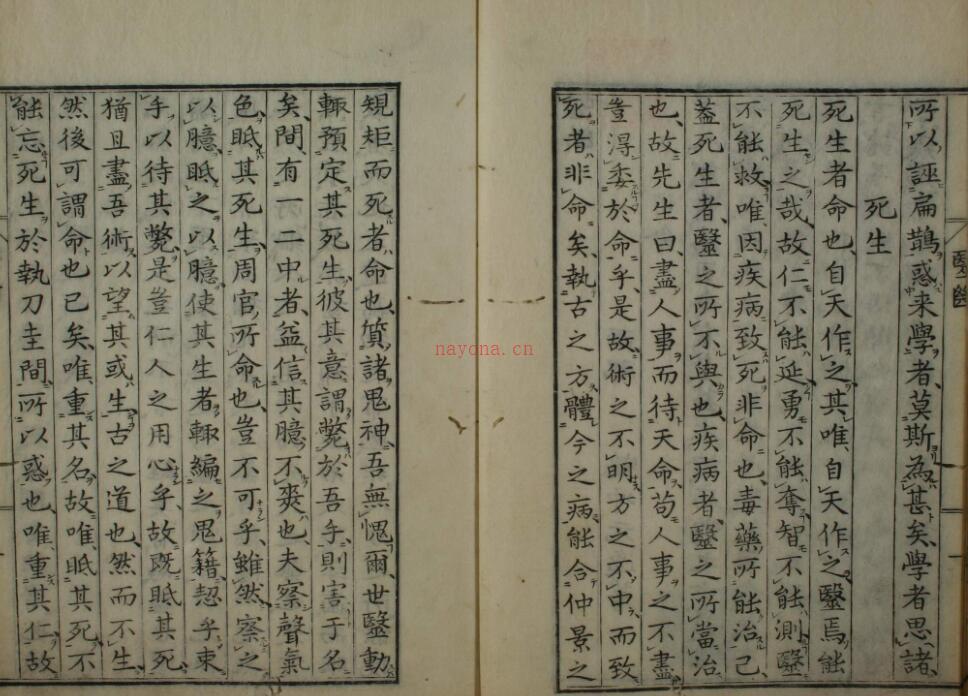 所以誣扁鵲惑来學者莫斯為甚矣學者思諸
死生
死生者命也自天作之其唯自天作之醫焉能
死生之哉故仁不能延勇不能奪智不能測醫
不能救唯因疾病致死非命也毒藥所能治已
蓋死生者醫之所不與也疾病者醫之所當治
也故先生曰盡人事而待天命苟人事之不盡
豈淂委於命乎是故術之不明方之不中而致
死者非命矣執古之方體今之病能合仲景之
規矩而死者命也質諸鬼神吾無愧爾世醫動
輙預定其死生彼其意謂斃於吾手則害于名
矣間有一二中者益信其臆不爽也夫察聲氣
色眂其死生周官所命也豈不可乎雖然察之
以臆眂之以臆使其生者輙編之鬼籍恝乎束
手以待其斃是豈仁人之用心乎故既眂其死
猶且盡吾術以望其或生古之道也然而不生
然後可謂命也已矣唯重其名故唯眂其死不
能忘死生於執刀圭間所以惑也唯重其仁故
醫
nayona.cn